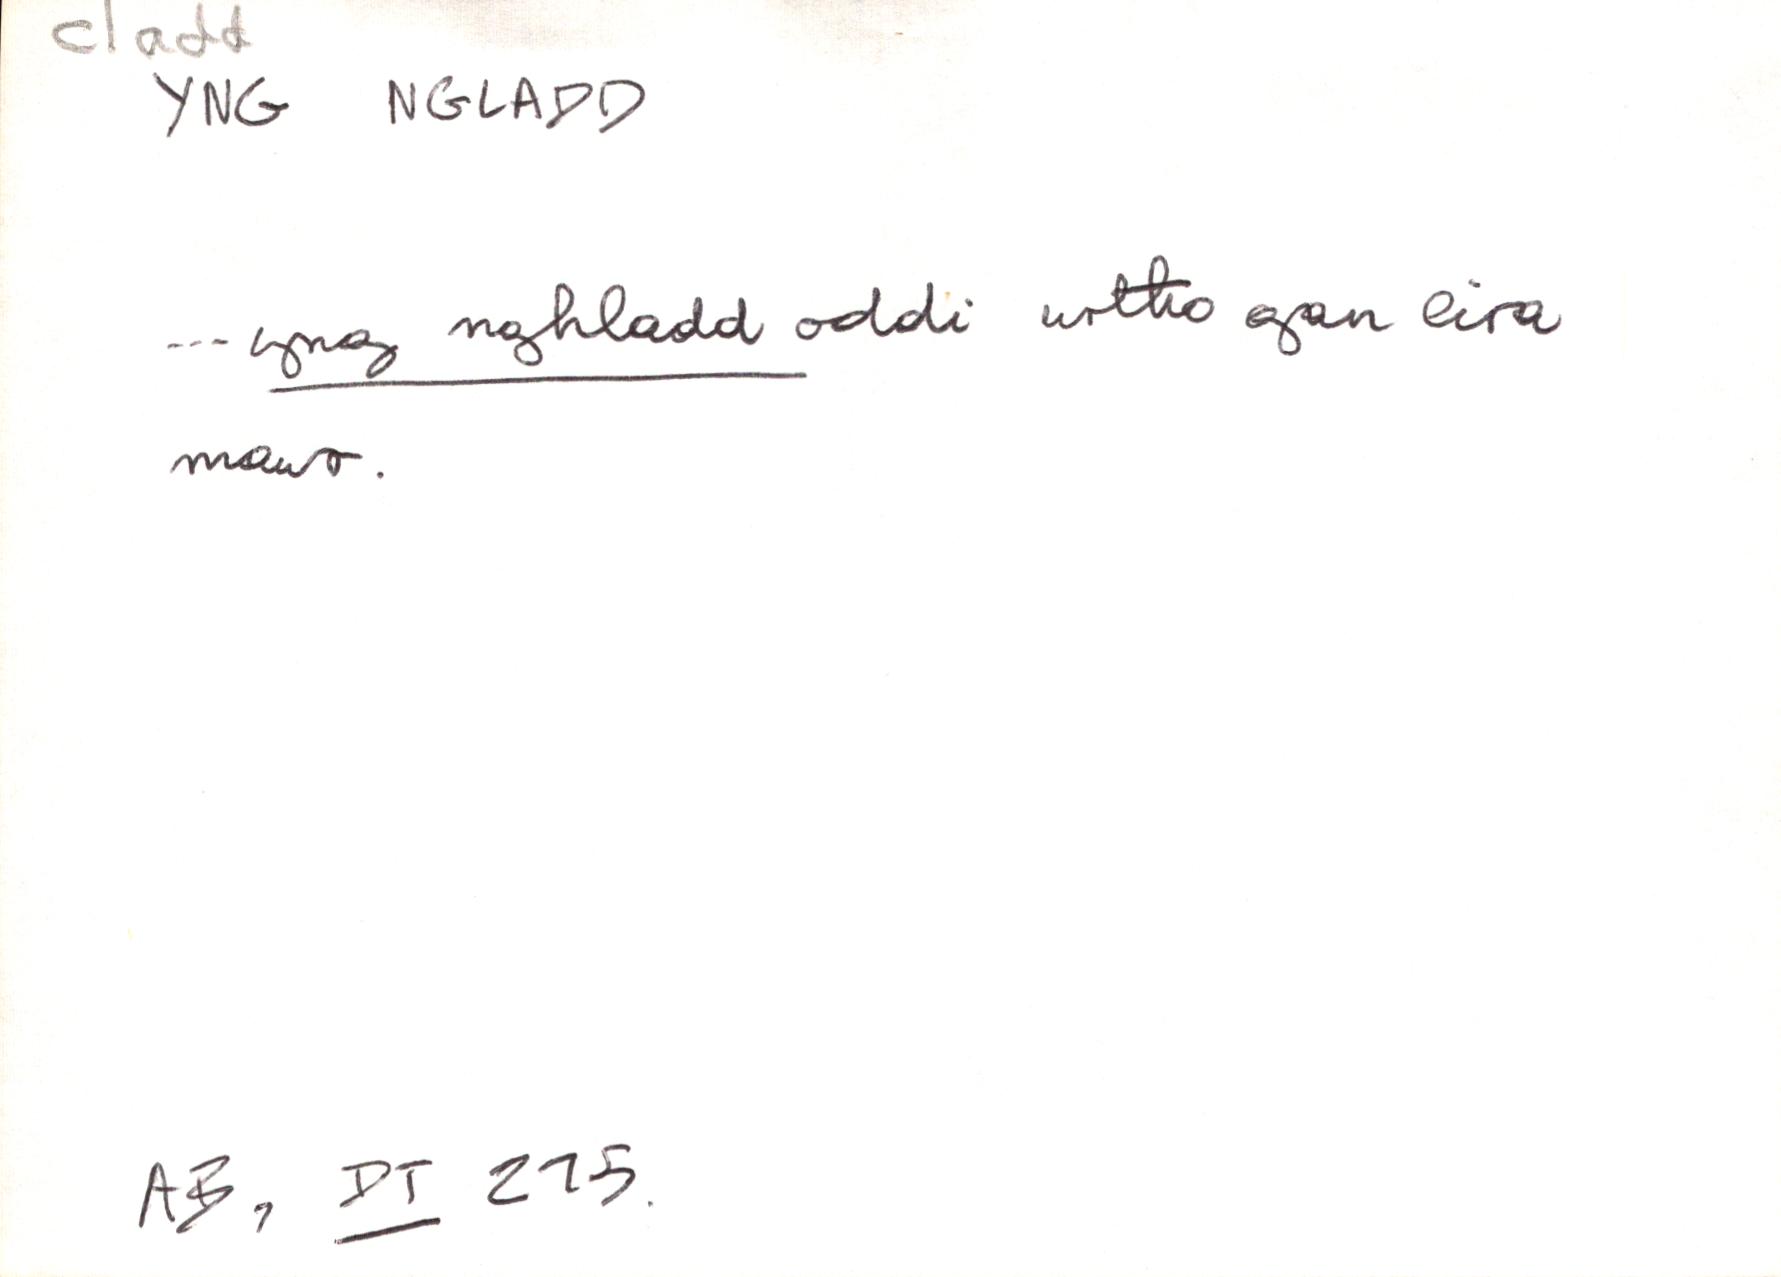 cladd
YNG NGLADD
--- yng nghladd oddi wrtho gan eira
mawr.
AB, DT 275.